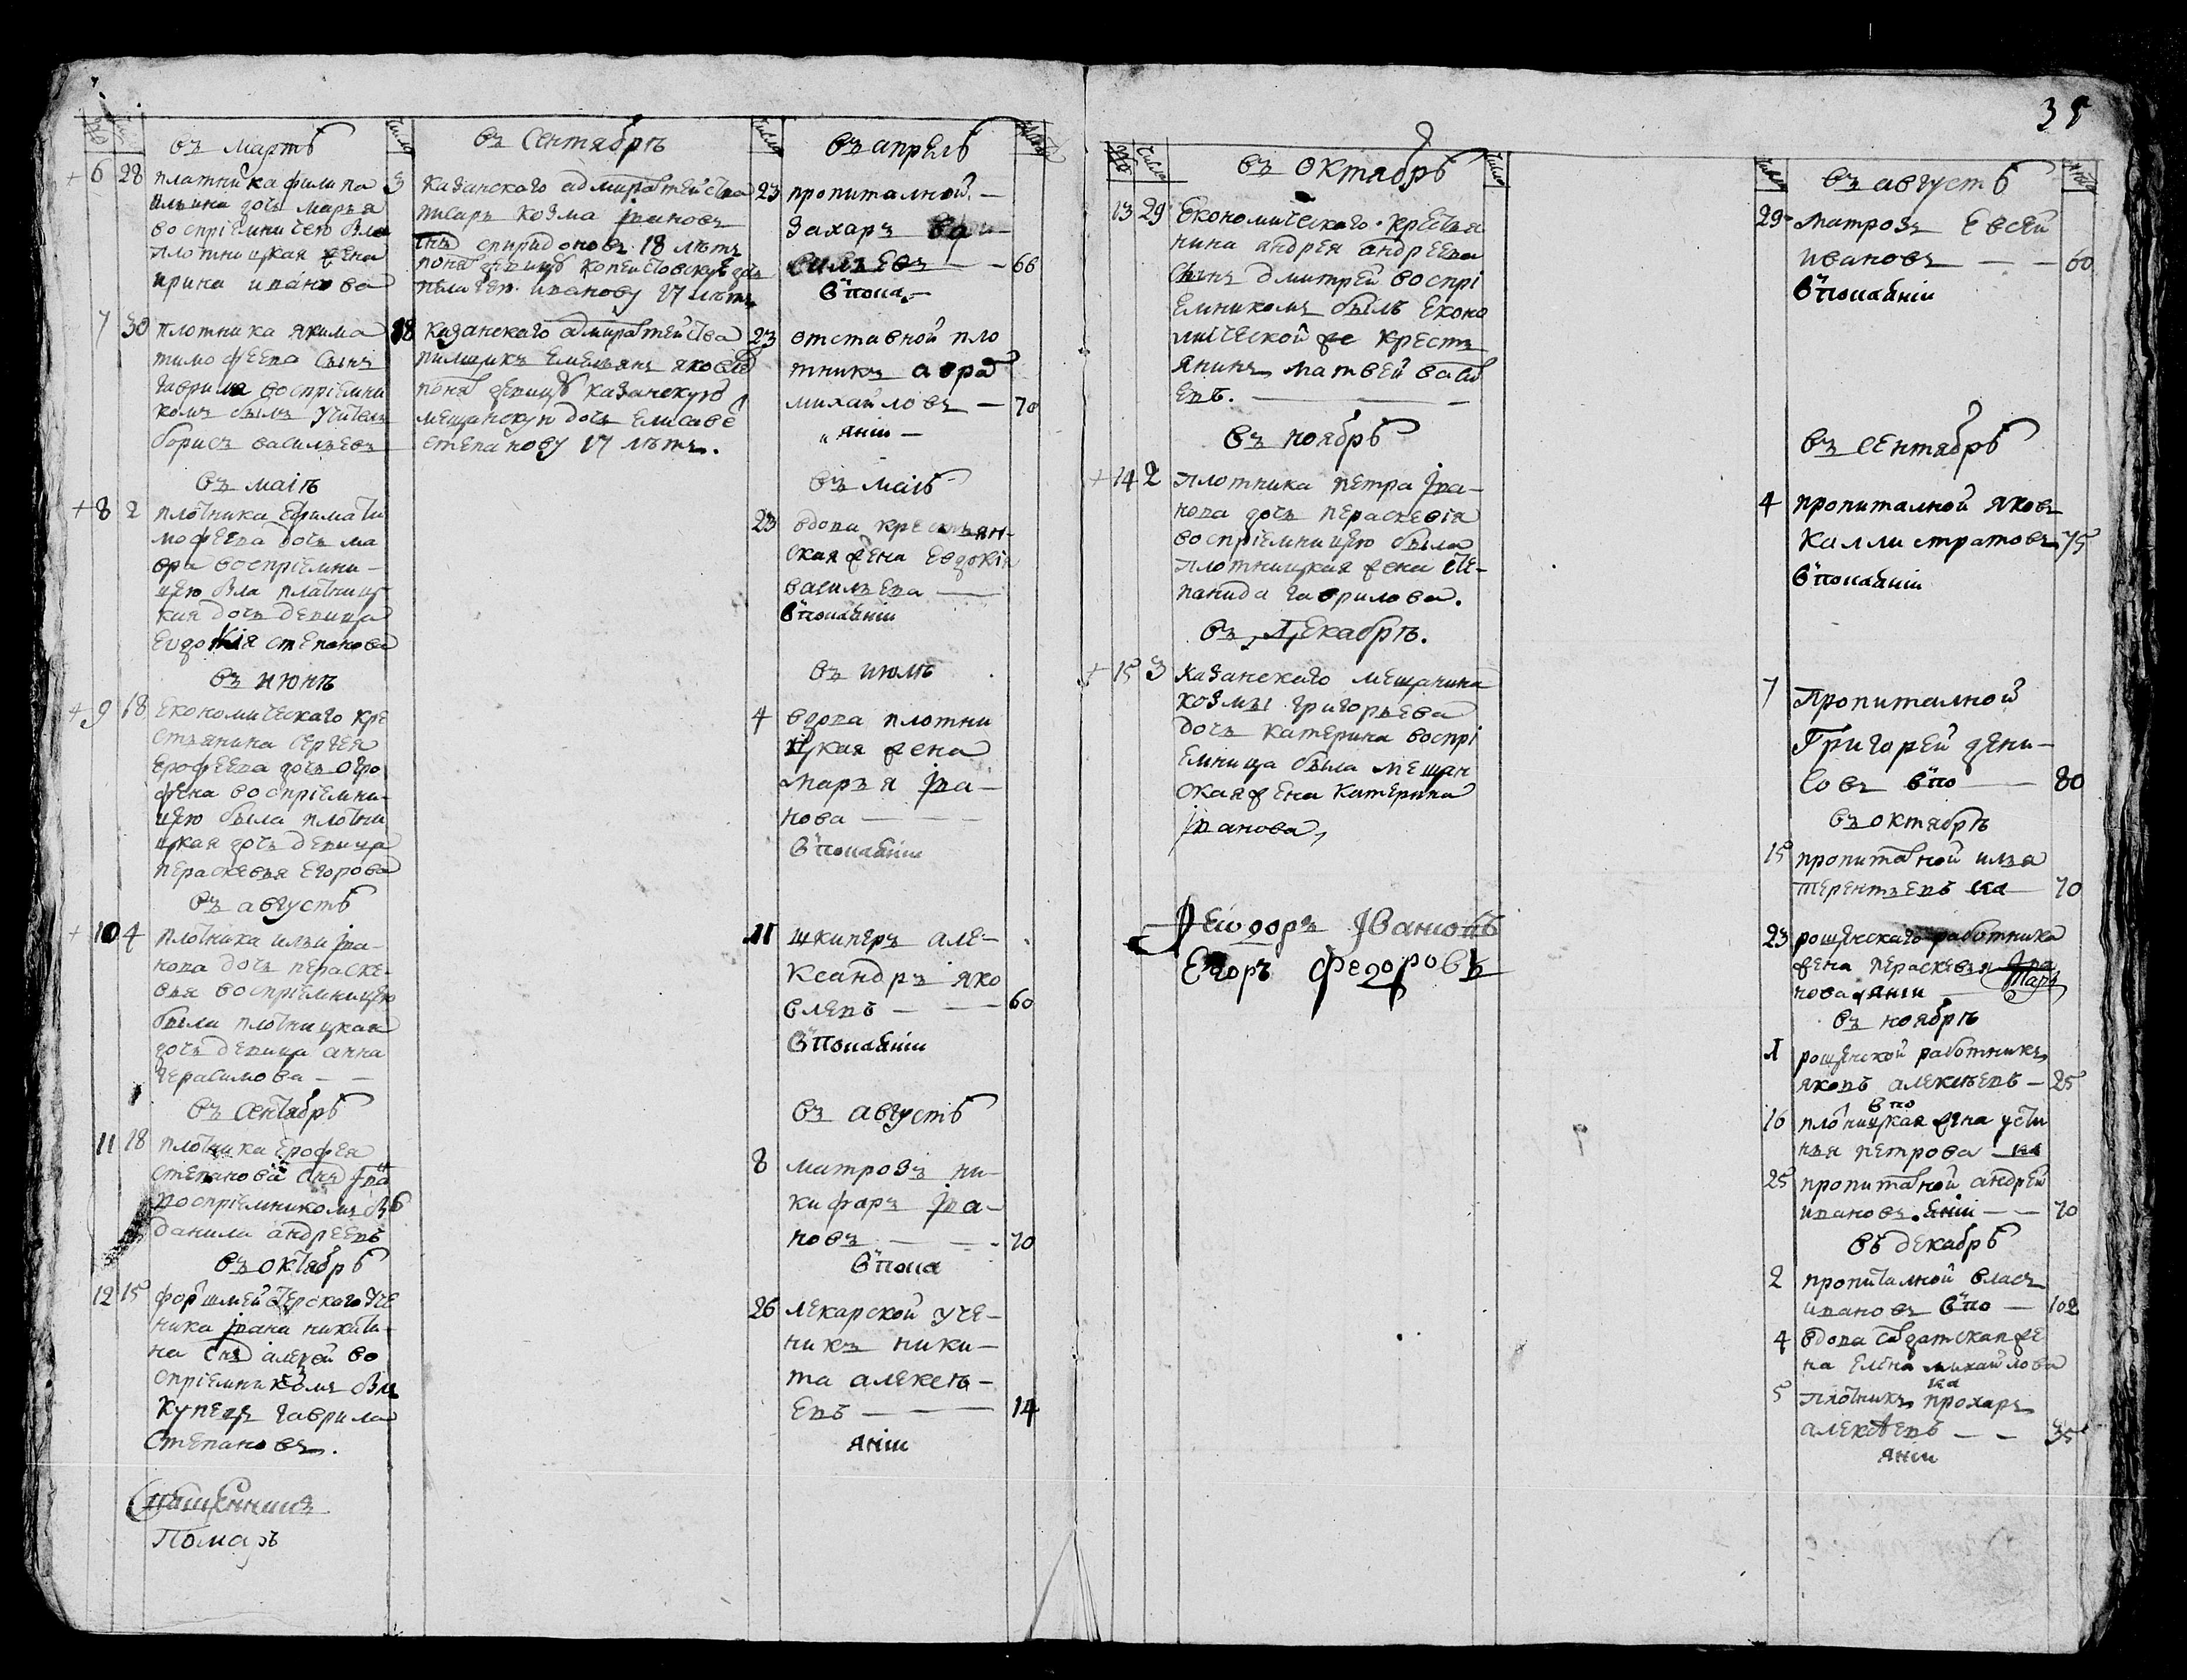 35
въ мартѣ
6 28 платника филипа
ильина дочь марья
воспріемничею бла
плотницкая жена
ирина иванова
7 30 плотника якима
тимофеева сынъ
гаврила воспріемни
комъ былъ учитель
борисъ васильевъ
въ маіѣ
+ 8 2 плотника ефима ти
мофеева дочь ма
вра воспріемни-
цею бла платниц
кая дочь девица
евдокія степанова
въ июнѣ
+ 9 18 Економического кре
стьянина сергея
ерофеева дочь огро
фена воспріемни-
цею была плотни
цкая дочь девица
пераскевья егорова
въ августѣ
+ 10 4 плотника ильи ива-
нова дочь пераске-
вья воспріемницею
была плотницкая
дочь девица анна
герасимова
въ сентябрѣ
11 18 плотника ерофея
степанова снъ
воспріемникомъ
данила андреевъ
въ октябрѣ
12 15 форшмейстерского уче
ника ивана никити-
на снъ алексѣй во
спріемникомъ
купецъ гаврила
степановъ.
Священникъ
въ Сентябрѣ
3 казанского адмиралтейства
писарь козма ивановъ
снъ спиридоновъ 18 лѣтъ
понялъ девицу копеистовскую дочь
пелагею иванову 17 лѣтъ
18 казанского адмиралтейства
пильщикъ емельянъ яковлевъ
понялъ девицу казанскую
мещанскую дочь елисаве
степанову 17 лѣтъ.
въ апрелѣ
23 пропиталной
захаръ ва
сильевъ 66
в пока
23 отставной пло
тникъ авра
михайловъ 70
яніи
въ маіѣ
23 вдова крестьян-
ская жена евдокія
васильева
в покаяніи
въ июлѣ
4 вдова плотни
цкая жена
марья ива-
нова
в покаяніи
11 шкиперъ але-
ксандръ яко
влевъ 60
в покаяніи
въ августѣ
8 матрозъ ни-
кифаръ ива-
новъ 70
в пока
26 лекарской уче-
никъ ники-
та алексѣ-
евъ 14
яніи
въ октябрѣ
13 29 Економического крестья
нина андрея андреева
сынъ дмитрей воспрі
емникомъ былъ еконо
мической же кресть
янинъ матвей васил
евъ.
въ ноябрѣ
+ 14 2 плотника петра ива-
нова дочь пераскевія
воспріемницею была
плотницкая жена сте-
панида гаврилова.
въ декабрѣ.
15 3 казанского мещанина
козмы григорьева
дочь катерина воспрі
емница была мещан
ская жена катерина
иванова
Ѳеодоръ Ивановъ
Егоръ Федоровъ
въ августѣ
29 матрозъ евсей
ивановъ 60
в покаяніи
въ сентябрѣ
4 пропиталной яковъ
каллистратовъ 75
в покаяніи
7 Пропиталной
Григорей дени-
совъ в по 80
въ октябрѣ
15 пропиталной илья
терентьевъ ка 70
23 рощенского работника
жена пераскевья
нова яніи
въ ноябрѣ
1 рощенской работникъ
яковъ алексѣевъ 25
в по
16 плотницкая жена усти
нья петрова ка
25 пропиталной андрей
ивановъ яніи 70
въ декабрѣ
2 пропиталной власъ
ивановъ в по 102
4 вдова салдатская же
на елена михайлова
ка
5 плотникъ прохаръ
алексѣевъ 35
яніи